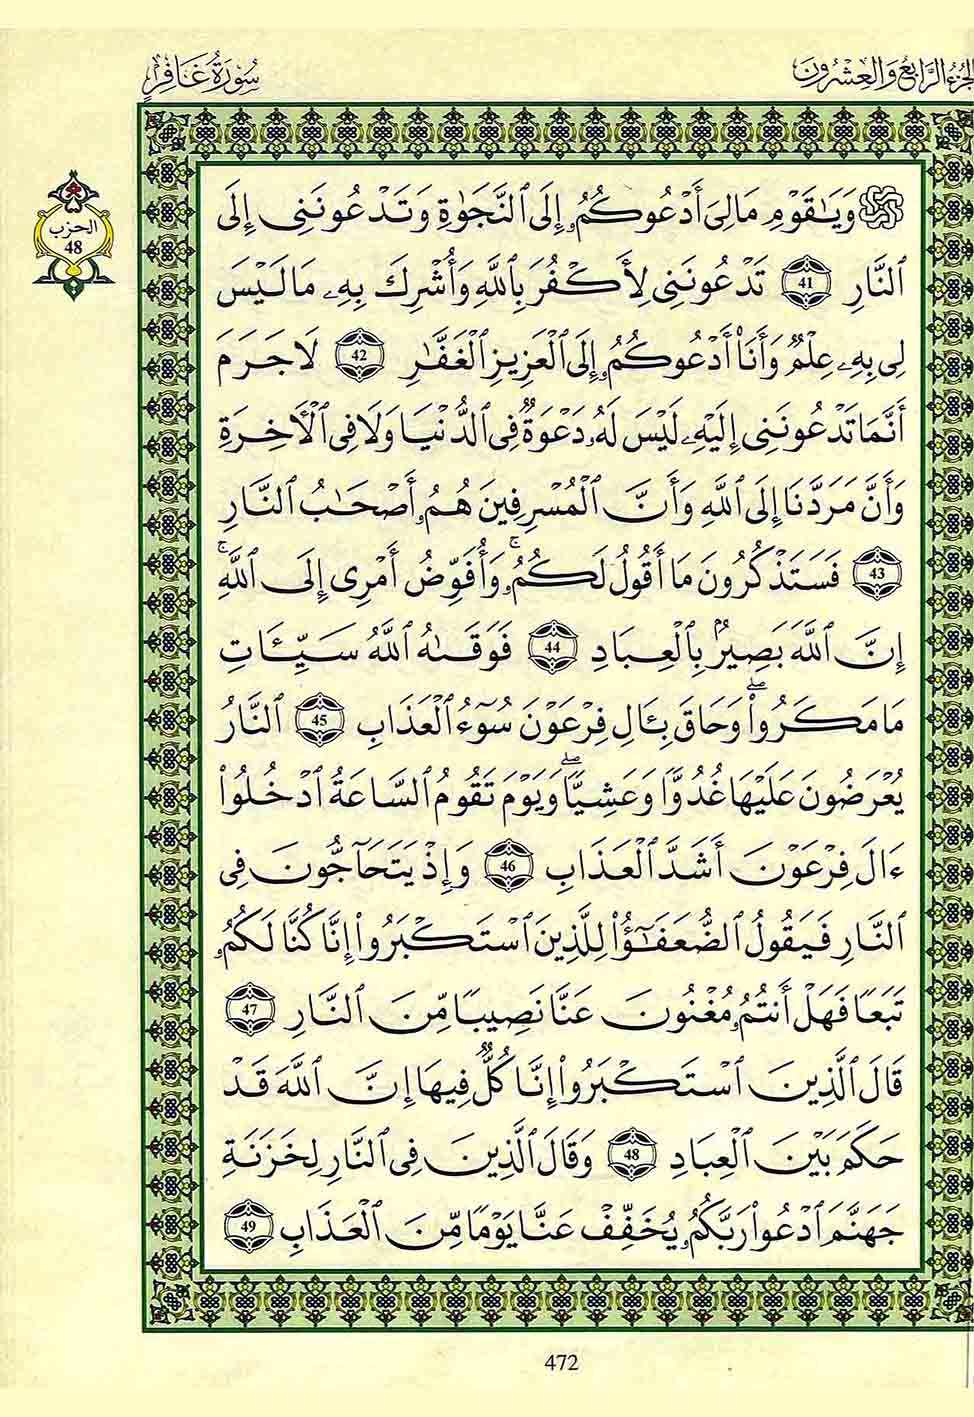 الجزء الرابع والعشرون
سُورَةُ غَافِرٍ
الحزب
48
وَيَٰقَوْمِ مَا لِيَ أَدْعُوكُمُۥٓ إِلَى ٱلنَّجَوٰةِ وَتَدْعُونَنِىٓ إِلَى
ٱلنَّارِ 41 تَدْعُونَنِى لِأَكْفُرَ بِٱللَّهِ وَأُشْرِكَ بِهِۦ مَا لَيْسَ
لِى بِهِۦ عِلْمٌ وَأَنَا۠ أَدْعُوكُمُۥٓ إِلَى ٱلْعَزِيزِ ٱلْغَفَّٰرِ 42 لَا جَرَمَ
أَنَّمَا تَدْعُونَنِىٓ إِلَيْهِۦ لَيْسَ لَهُۥ دَعْوَةٌ فِى ٱلدُّنْيَا وَلَا فِى ٱلْأَخِرَةِ
وَأَنَّ مَرَدَّنَا إِلَى ٱللَّهِ وَأَنَّ ٱلْمُسْرِفِينَ هُمُۥٓ أَصْحَٰبُ ٱلنَّارِ
43 فَسَتَذْكُرُونَ مَا أَقُولُ لَكُمُۥۚ وَأُفَوِّضُ أَمْرِى إِلَى ٱللَّهِۚ
إِنَّ ٱللَّهَ بَصِيرٌۢ بِٱلْعِبَادِ 44 فَوَقَىٰهُ ٱللَّهُ سَيِّـَٔاتِ
مَا مَكَرُوا۟ۖ وَحَاقَ بِـَٔالِ فِرْعَوْنَ سُوٓءُ ٱلْعَذَابِ 45 ٱلنَّارُ
يُعْرَضُونَ عَلَيْهَا غُدُوًّا وَعَشِيًّاۖ وَيَوْمَ تَقُومُ ٱلسَّاعَةُ ٱدْخُلُوٓا۟
ءَالَ فِرْعَوْنَ أَشَدَّ ٱلْعَذَابِ 46 وَإِذْ يَتَحَآجُّونَ فِى
ٱلنَّارِ فَيَقُولُ ٱلضُّعَفَٰٓؤُا۟ لِلَّذِينَ ٱسْتَكْبَرُوٓا۟ إِنَّا كُنَّا لَكُمُۥ
تَبَعًا فَهَلْ أَنتُمُۥ مُغْنُونَ عَنَّا نَصِيبًا مِّنَ ٱلنَّارِ 47
قَالَ ٱلَّذِينَ ٱسْتَكْبَرُوٓا۟ إِنَّا كُلٌّ فِيهَا إِنَّ ٱللَّهَ قَدْ
حَكَمَ بَيْنَ ٱلْعِبَادِ 48 وَقَالَ ٱلَّذِينَ فِى ٱلنَّارِ لِخَزَنَةِ
جَهَنَّمَ ٱدْعُوا۟ رَبَّكُمُۥ يُخَفِّفْ عَنَّا يَوْمًا مِّنَ ٱلْعَذَابِ 49
472